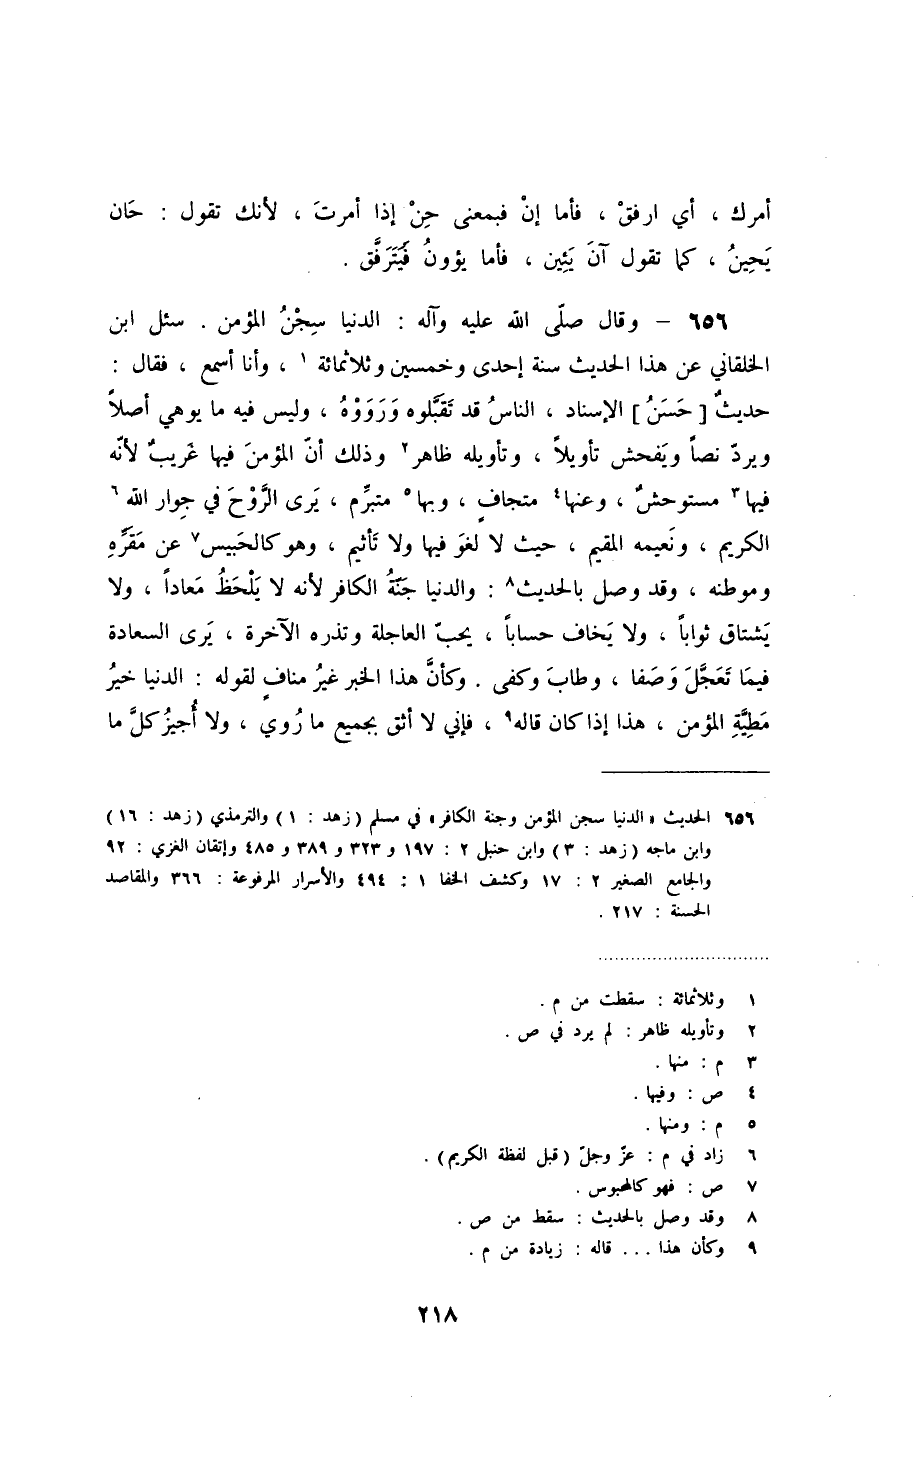 أمرك ، أي ارفقْ ، فأما إنْ فبمعنى حِنْ إذا أمرتَ ، لأنك تقول : حَان
يَحِينُ ، كما تقول آنَ يَئِين ، فأما يؤونُ فَيَتَرفَّق .
٦٥٦ – وقال صلّى الله عليه وآله : الدنيا سِجْنُ المؤمن . سئل ابن
الخلقاني عن هذا الحديث سنة إحدى وخمسين وثلاثمائة ١ ، وأنا أسمع ، فقال :
حديثٌ [ حَسَنُ ] الإسناد ، الناسُ قد تَقَبَّلوه وَرَوَوْهُ ، وليس فيه ما يوهي أصلاً
ويردّ نصاً ويَفحش تأويلاً ، وتأويله ظاهر٢ وذلك أنّ المؤمنَ فيها غَريبٌ لأنّه
فيها٣ مستوحشٌ ، وعنها٤ متجافٍ ، وبها٥ متبرِّم ، يَرى الرَّوْحَ في جِوار الله ٦
الكريم ، ونَعيمه المقيم ، حيث لا لغوَ فيها ولا تَأثيم ، وهو كالحَبيس٧ عن مَقَرِّهِ
وموطنه ، وقد وصل بالحديث٨ : والدنيا جَنّةُ الكافر لأنه لا يَلْحَظُ مَعاداً ، ولا
يَشتاق ثواباً ، ولا يَخاف حساباً ، يحبّ العاجلة وتذره الآخرة ، يَرى السعادة
فيمَا تَعَجَّلَ وَصَفا ، وطابَ وكفى . وكأنَّ هذا الخبر غيرُ منافٍ لقوله : الدنيا خيرُ
مَطِيَّةِ المؤمن ، هذا إذا كان قاله٩ ، فإني لا أثق بجميع ما رُوي ، ولا أُجيزُ كلَّ ما
٦٥٦ الحديث « الدنيا سجن المؤمن وجنة الكافر » في مسلم (زهد : ١) والترمذي (زهد : ١٦)
وابن ماجه (زهد : ٣) وابن حنبل ٢ : ١٩٧ و ٣٢٣ و ٣٨٩ و ٤٨٥ وإتقان الغزي : ٩٢
والجامع الصغير ٢ : ١٧ وكشف الخفا ١ : ٤٩٤ والأسرار المرفوعة : ٣٦٦ والمقاصد
الحسنة : ٢١٧ .
١ وثلاثمائة : سقطت من م .
٢ وتأويله ظاهر : لم يرد في ص .
٣ م : منها .
٤ ص : وفيها .
٥ م : ومنها .
٦ زاد في م : عزّ وجلّ (قبل لفظة الكريم) .
٧ ص : فهو كالمحبوس .
٨ وقد وصل بالحديث : سقط من ص .
٩ وكأن هذا ... قاله : زيادة من م .
٢١٨